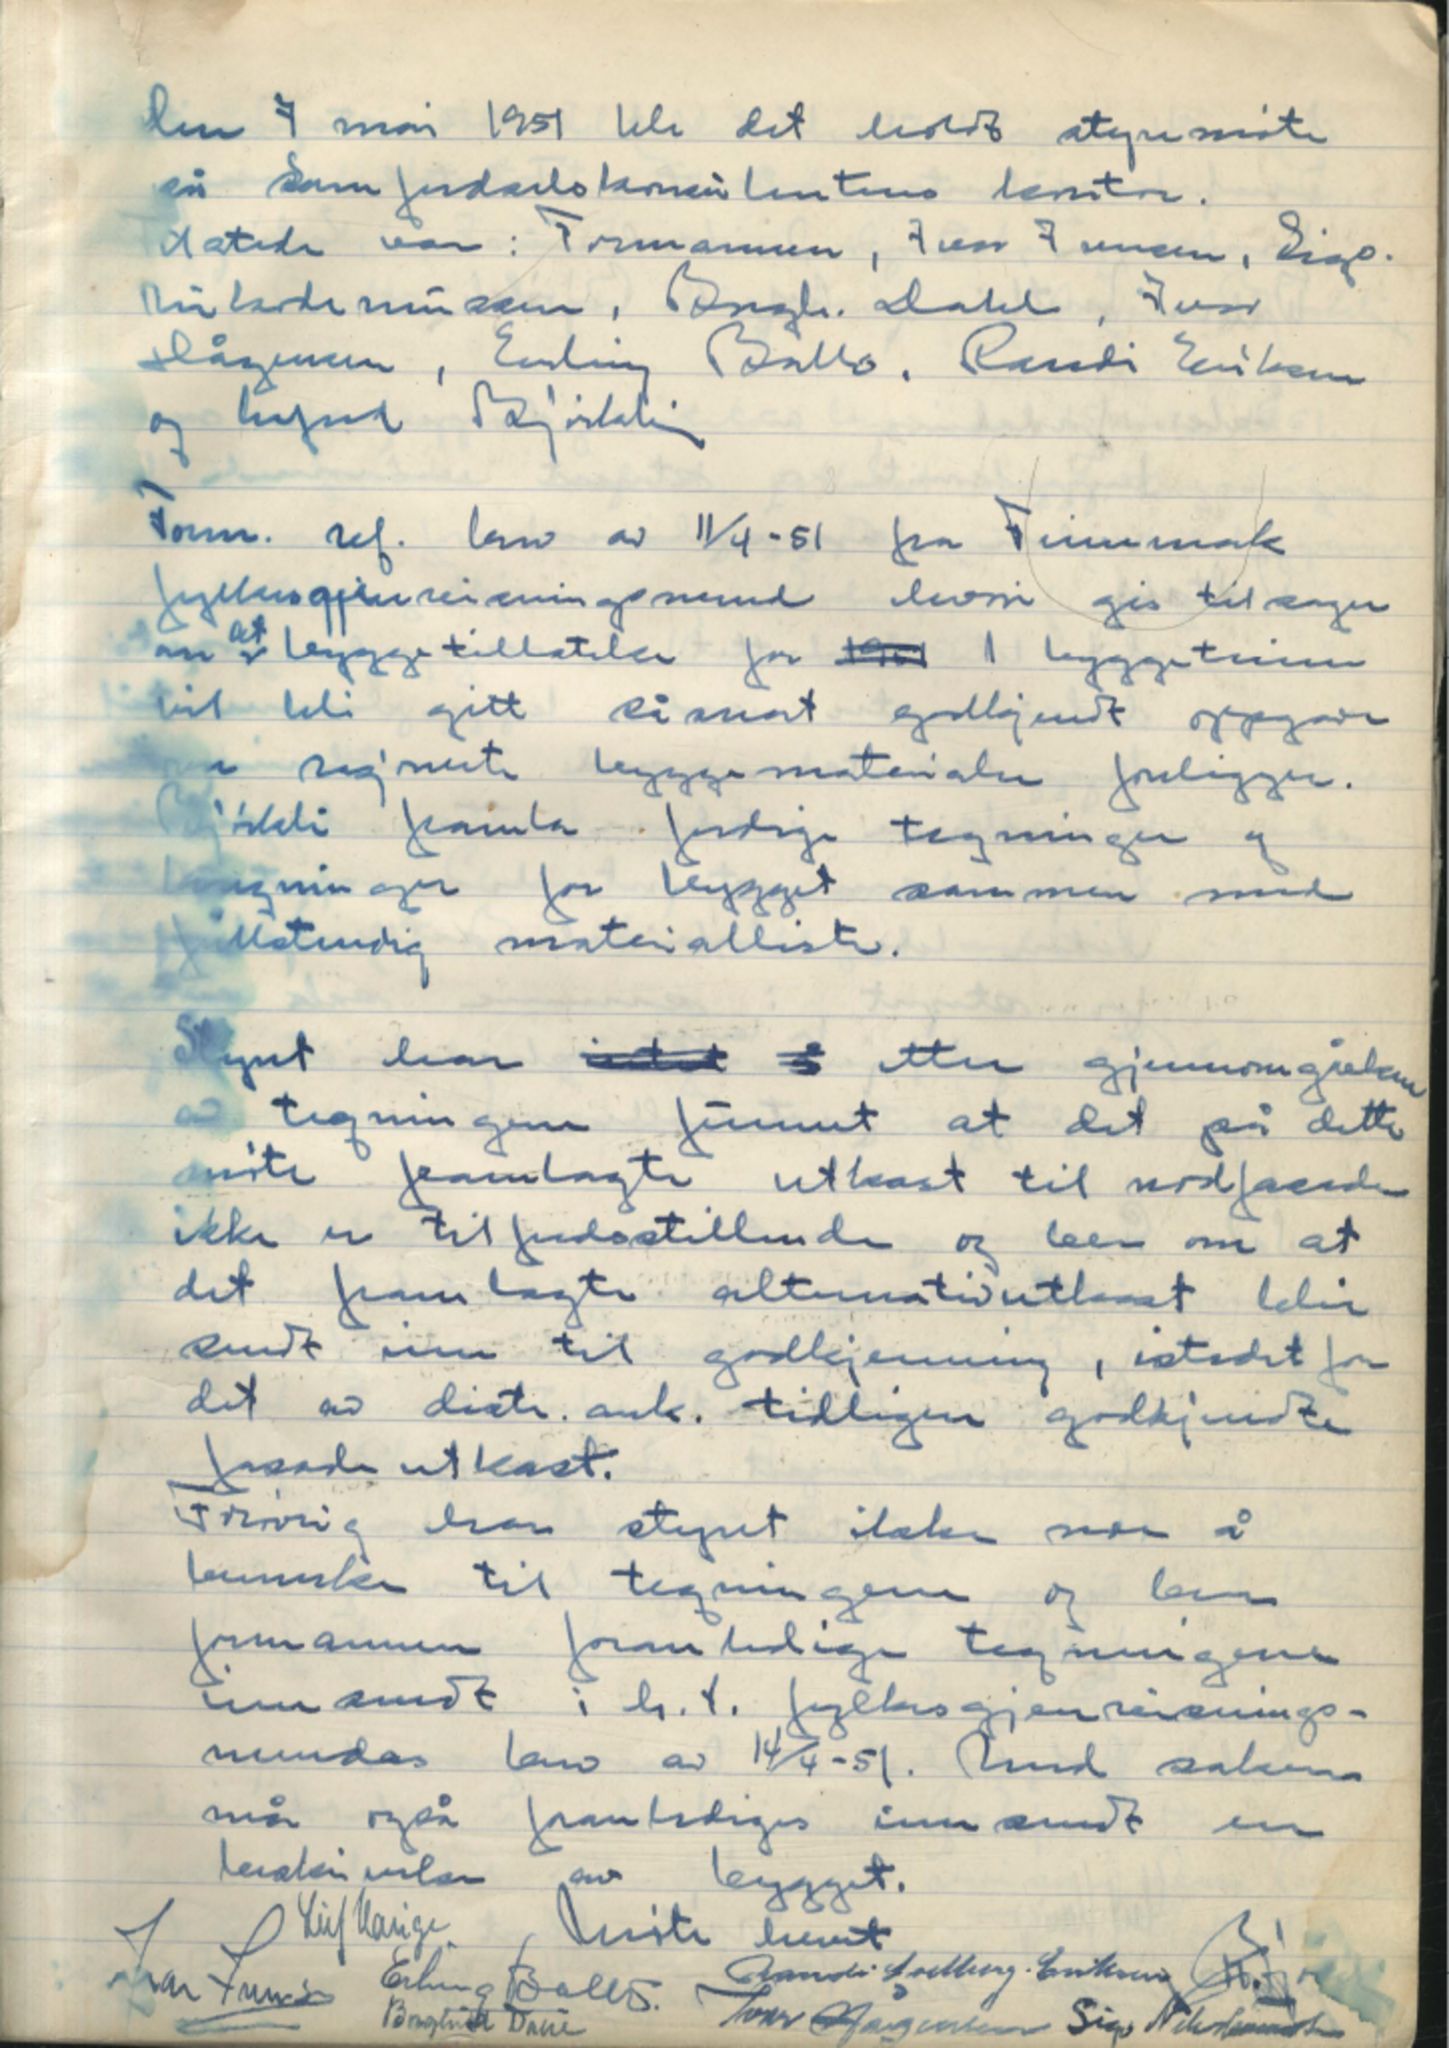 Den 7 mai 1951 ble det holdt styremöte
på Samferdselskonsulentens kontor.
Møtede var: Formannen, Ivar Jensen, Sigv.
Nikodemussen, Borgh. Dahl, Ivar
Hågensen, Erling Ballo, Randi Eriksen
og Björkli
Form. ref. brev av 11/4-51 fra Finnmark
fylkesgjenreisningsnemnd hvori gis tilsagn
om at byggetillatelse for 1951 1 byggetrinn
vil bli gitt såsnart godkjendt oppgave
rasjonerte byggematerialer foreligger.
Björkli framla ferdige tegninger og
beregninger for bygget sammen med
fullstendig materialliste.
Styret har etter gjennomgåelsen
av tegningene funnet at det på dette
möte framlagte utkast til nordfasade
ikke er tilfredsstillende og ber om at
det framlagte alternativutkast blir
sendt inn til godkjenning, istedetfor
det av distr. ark. tidligere godkjendte
fasadeutkast.
Forövrig har styret ikke noe å
bemerke til tegningene og ber
formannen foranledige tegningene
innsendt i h.t. fylkesgjenreisnings-
nemndas brev av 14/4-51. Med sakene
må også foranlediges innsendt en
beskrivelse av bygget.
Möte hevet
Leif Varige
Ivar Erling Ballo. Randi Solberg-Eriksen
Borghild Dahl Ivar Hågensen Sigv Nikodemussen